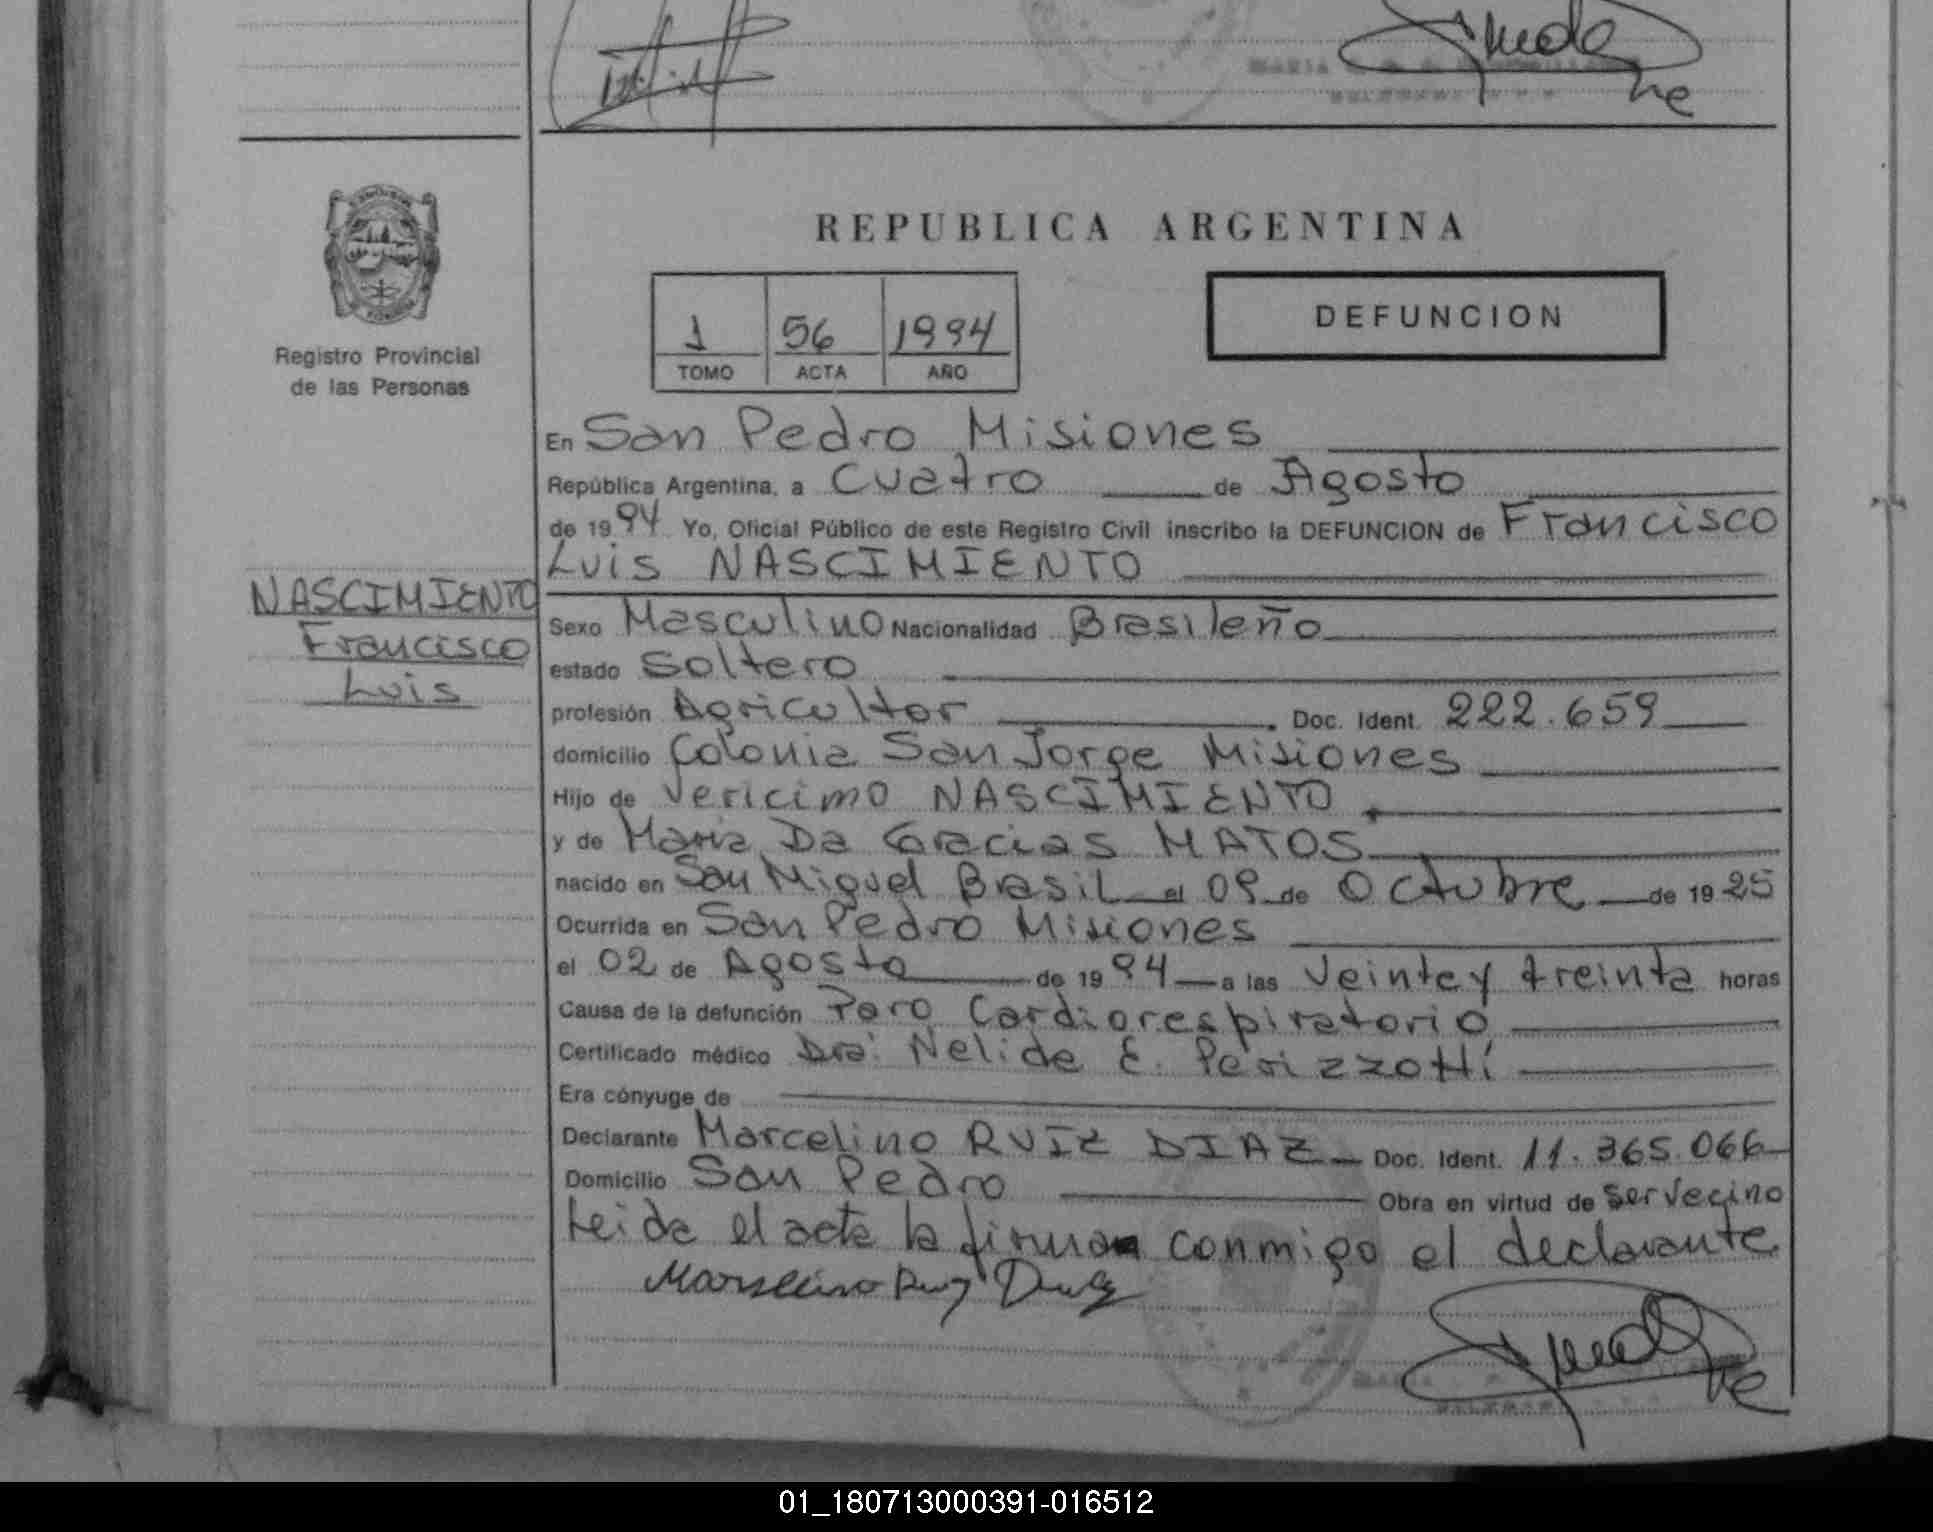 REPUBLICA ARGENTINA
1 56 1994
TOMO ACTA AÑO
DEFUNCION
Registro Provincial
de las Personas
En San Pedro Misiones
República Argentina, a Cuatro de Agosto
de 1994 Yo, Oficial Público de este Registro Civil inscribo la DEFUNCION de Francisco
Luis NASCIMIENTO
NASCIMIENTO
Francisco
Luis
Sexo Masculino Nacionalidad Brasileño
estado Soltero
profesión Agricultor Doc. Ident. 222.659
domicilio Colonia San Jorge Misiones
Hijo de Vericimo NASCIMIENTO
y de Maria Da Gracias MATOS
nacido en San Miguel Brasil el 09 de Octubre de 1925
Ocurrida en San Pedro Misiones
el 02 de Agosto de 1994 a las Veinte y treinta horas
Causa de la defunción Paro Cardiorespiratorio
Certificado médico Dra: Nelida E. Perizzotti
Era cónyuge de
Declarante Marcelino RUIZ DIAZ Doc. Ident. 11.365.066
Domicilio San Pedro Obra en virtud de Ser vecino
Leida el acta la firman conmigo el declarante
Marselino Ruiz Diaz
01_180713000391-016512